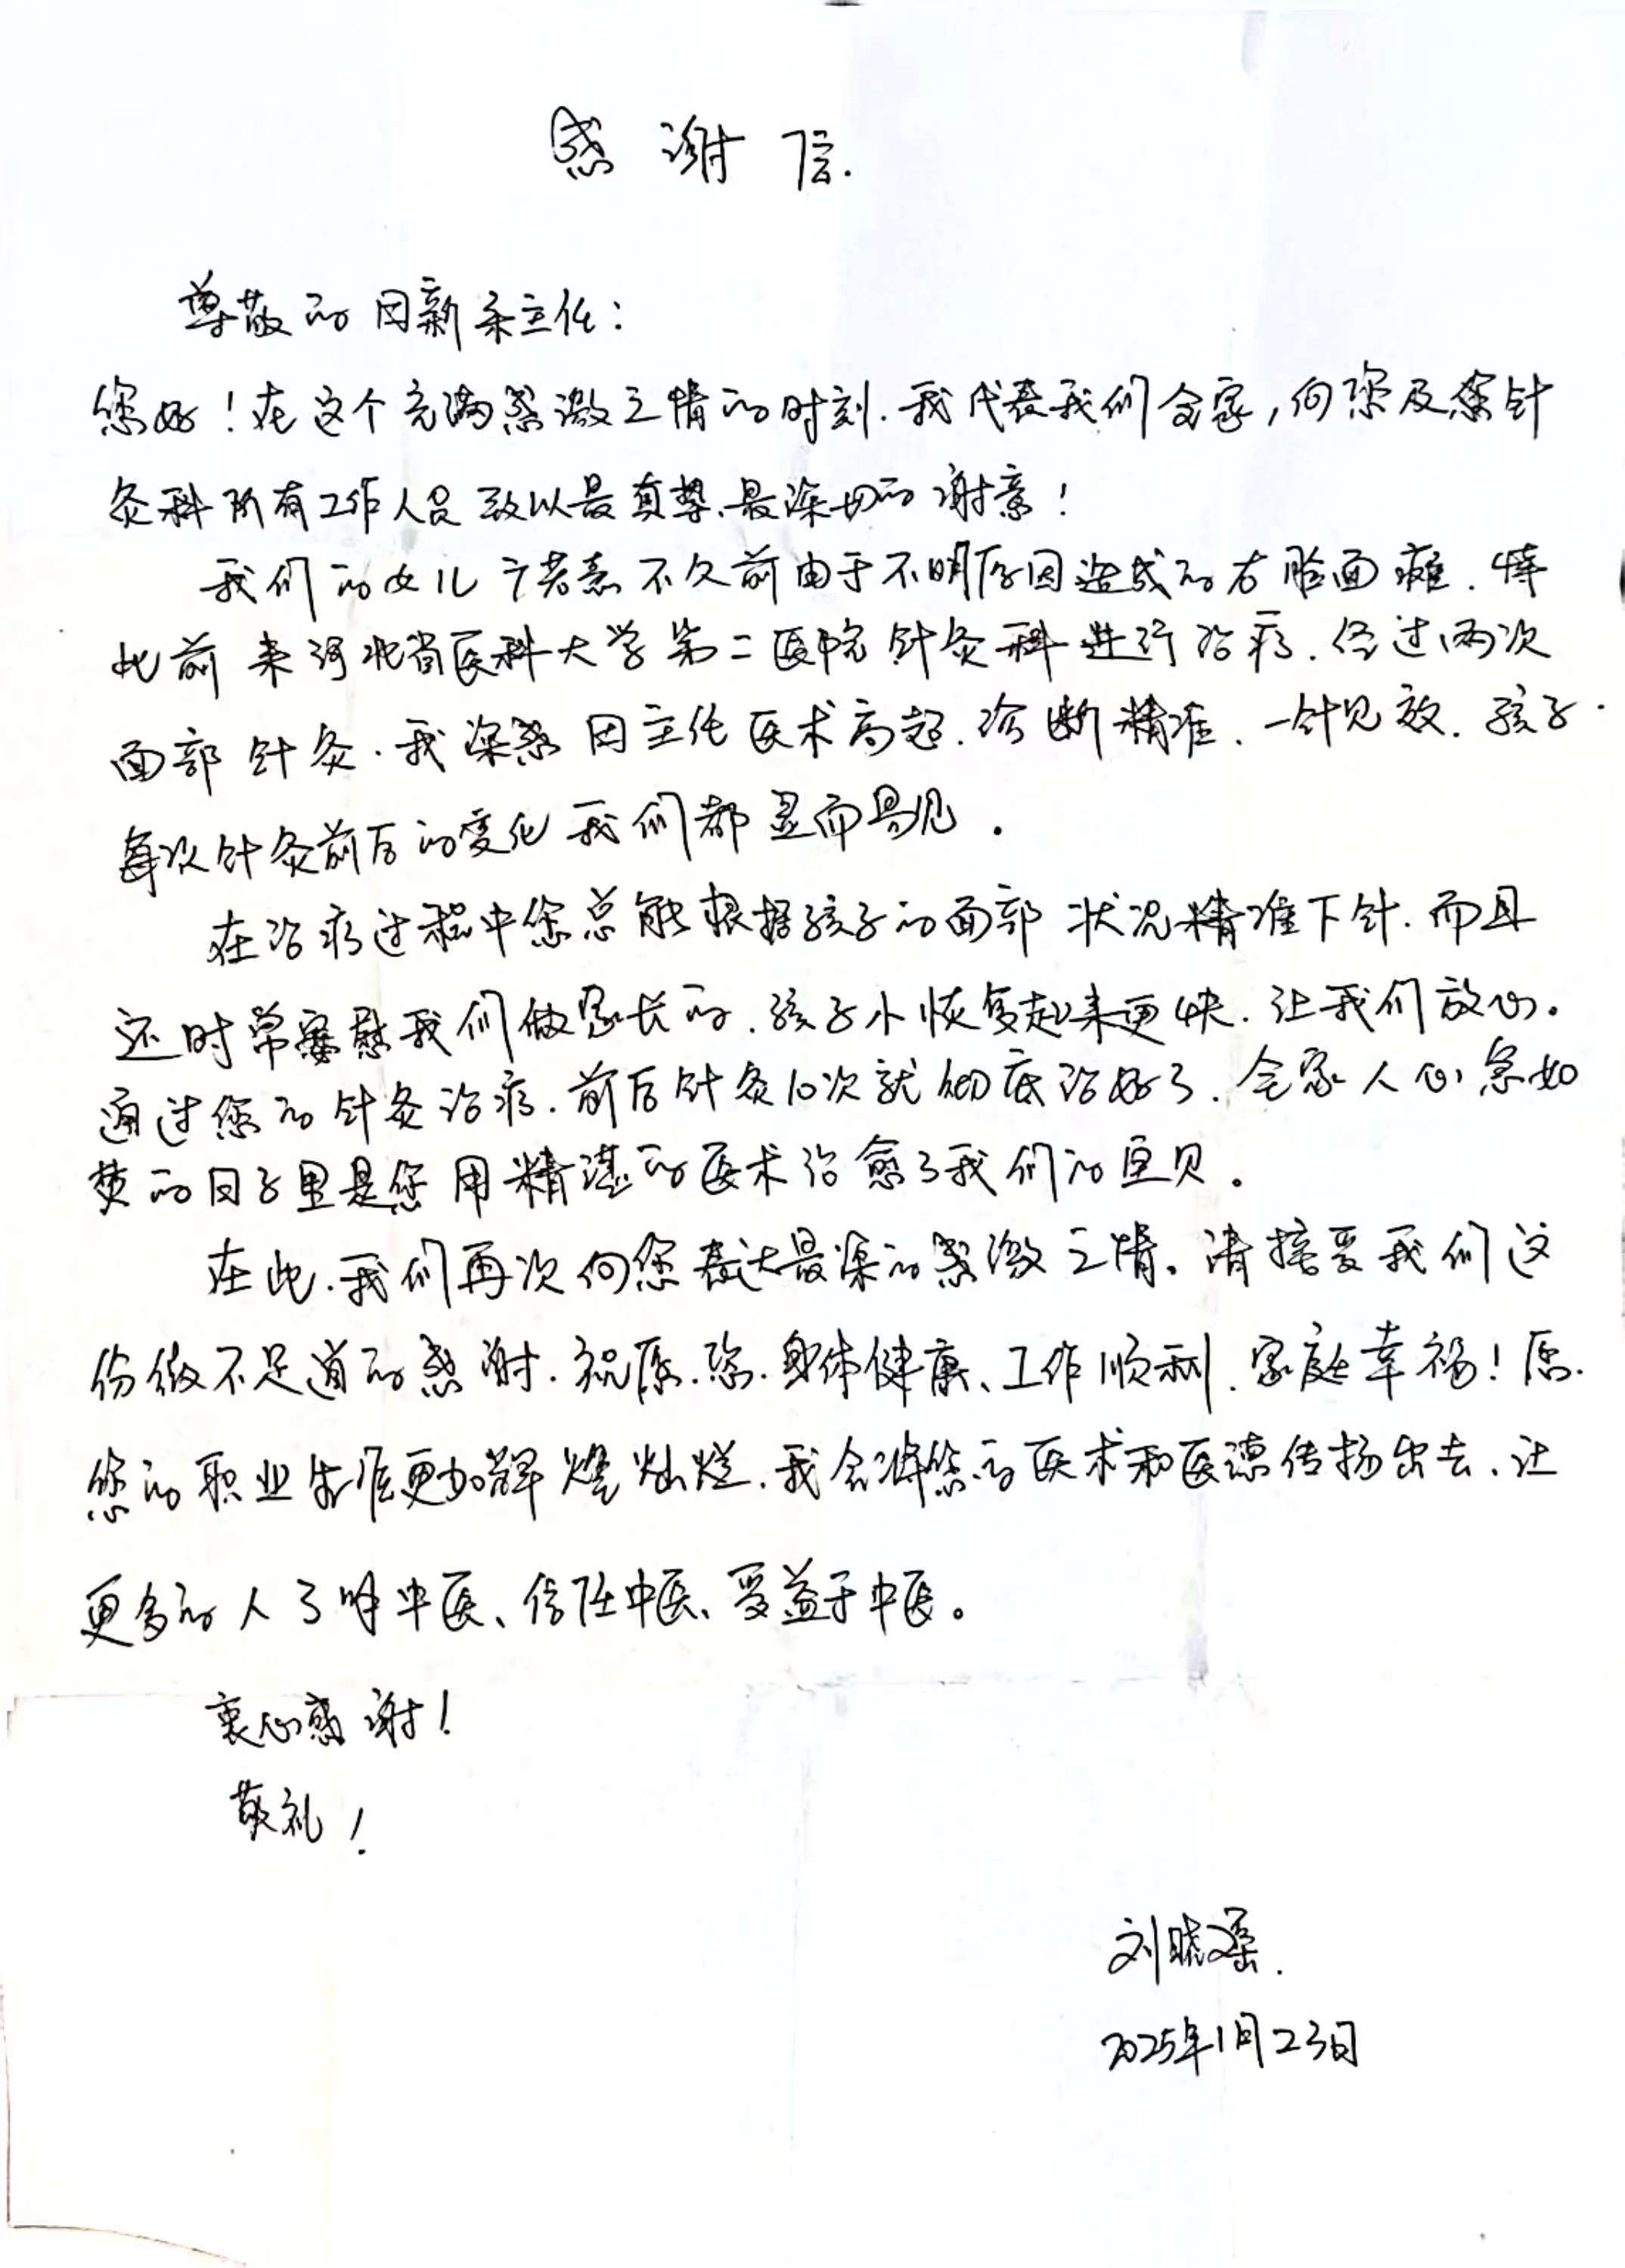 感谢信.
尊敬的因新条主任：
您好！在这个充满感激之情的时刻.我代表我们全家,向您及您针
灸科所有工作人员致以最真挚、最深切的谢意！
我们的女儿若熹不久前由于不明原因造成的右脸面瘫.
此前来河北省医科大学第二医院针灸科进行治疗.经过两次
面部针灸.我深感因主任医术高超.诊断精准、一针见效.孩子
每次针灸前后的变化我们都显而易见.
在治疗过程中您总能根据孩子的面部状况精准下针.而且
还时常安慰我们做家长的.孩子小恢复起来更快.让我们放心。
通过您的针灸治疗.前后针灸10次就彻底治好了.全家人心急如
焚的日子里是您用精湛的医术治愈了我们的宝贝。
在此.我们再次向您表达最深的感激之情。请接受我们这
份微不足道的感谢.祝愿.您.身体健康、工作顺利.家庭幸福！愿.
您的职业生涯更加辉煌灿烂.我会将您的医术和医德传扬出去、让
更多的人了解中医、信任中医、受益于中医。
衷心感谢！
敬礼！
刘晓
2025年1月23日